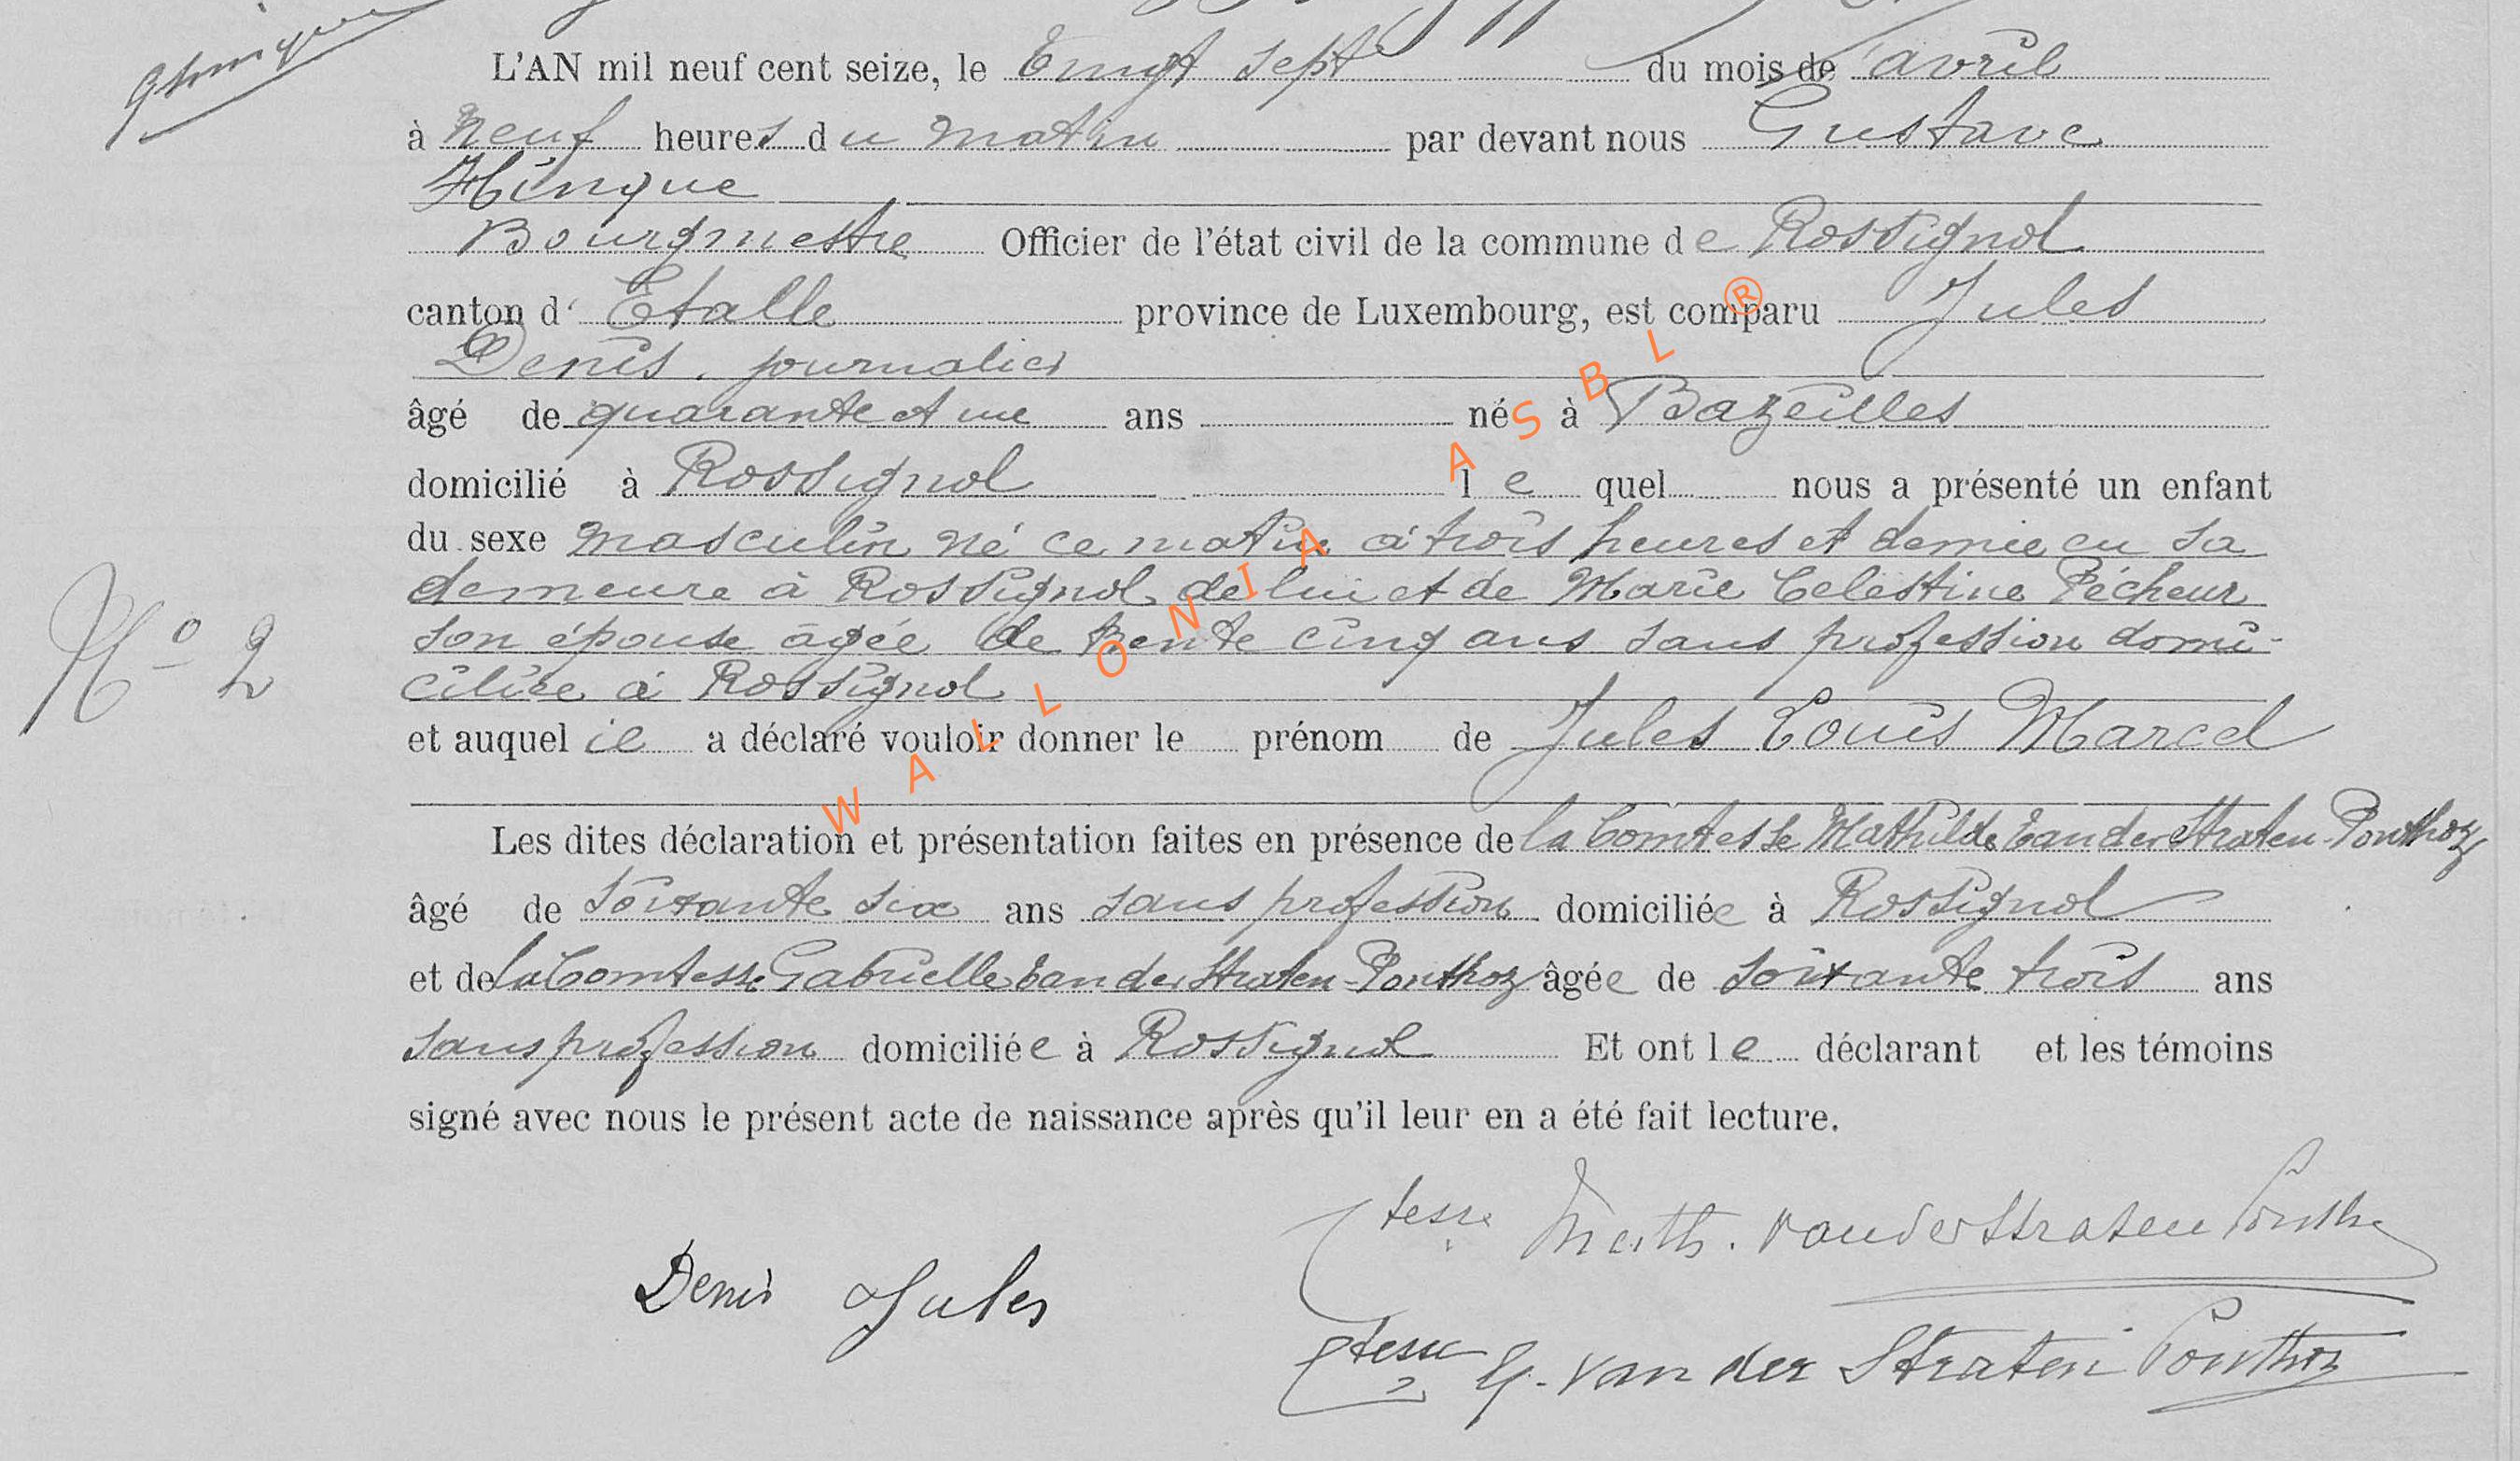 L'AN mil neuf cent seize, le vingt sept du mois de avril
à neuf heures du matin par devant nous Gustave
Hinque
Bourgmestre Officier de l'état civil de la commune de Rossignol
canton d' Etalle province de Luxembourg, est comparu Jules
Denis, journalier
âgé de quarante et un ans né à Bazeilles
domicilié à Rossignol lequel nous a présenté un enfant
du sexe masculin né ce matin à trois heures et demie en sa
demeure à Rossignol de lui et de Marie Celestine Pécheur
son épouse âgée de trente cinq ans sans profession domi-
ciliée à Rossignol
N° 2
et auquel il a déclaré vouloir donner le prénom de Jules Louis Marcel
Les dites déclaration et présentation faites en présence de la Comtesse Mathilde Van der Straten-Ponthoz
âgé de soixante six ans sans profession domiciliée à Rossignol
et de la Comtesse Gabrielle Van der Straten-Ponthoz âgée de soixante trois ans
sans profession domiciliée à Rossignol Et ont le déclarant et les témoins
signé avec nous le présent acte de naissance après qu'il leur en a été fait lecture.
Ctesse Math. van der Straten Ponthoz
Denis Jules
Ctesse G. van der Straten Ponthoz
WALLONIA ASBL ®